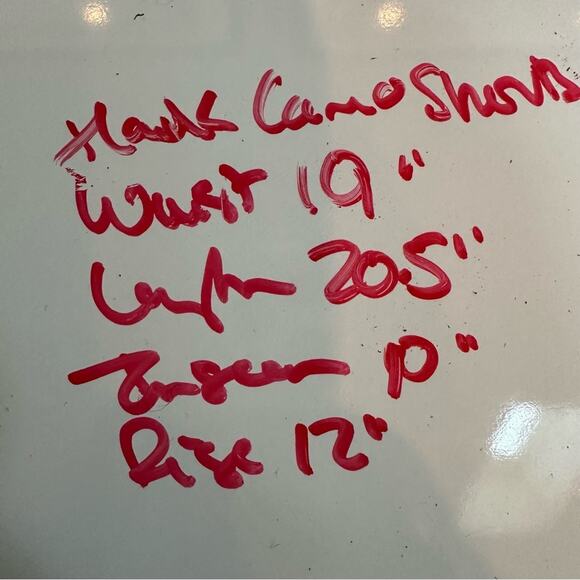 Hawk Camo Shorts
Waist 19"
Length 20.5"
Inseam 10"
Rise 12"